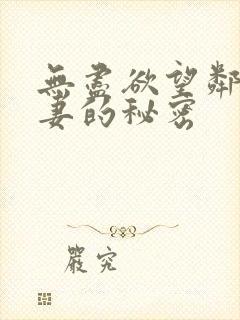 無盡欲望鄰
妻的秘密
嚴究